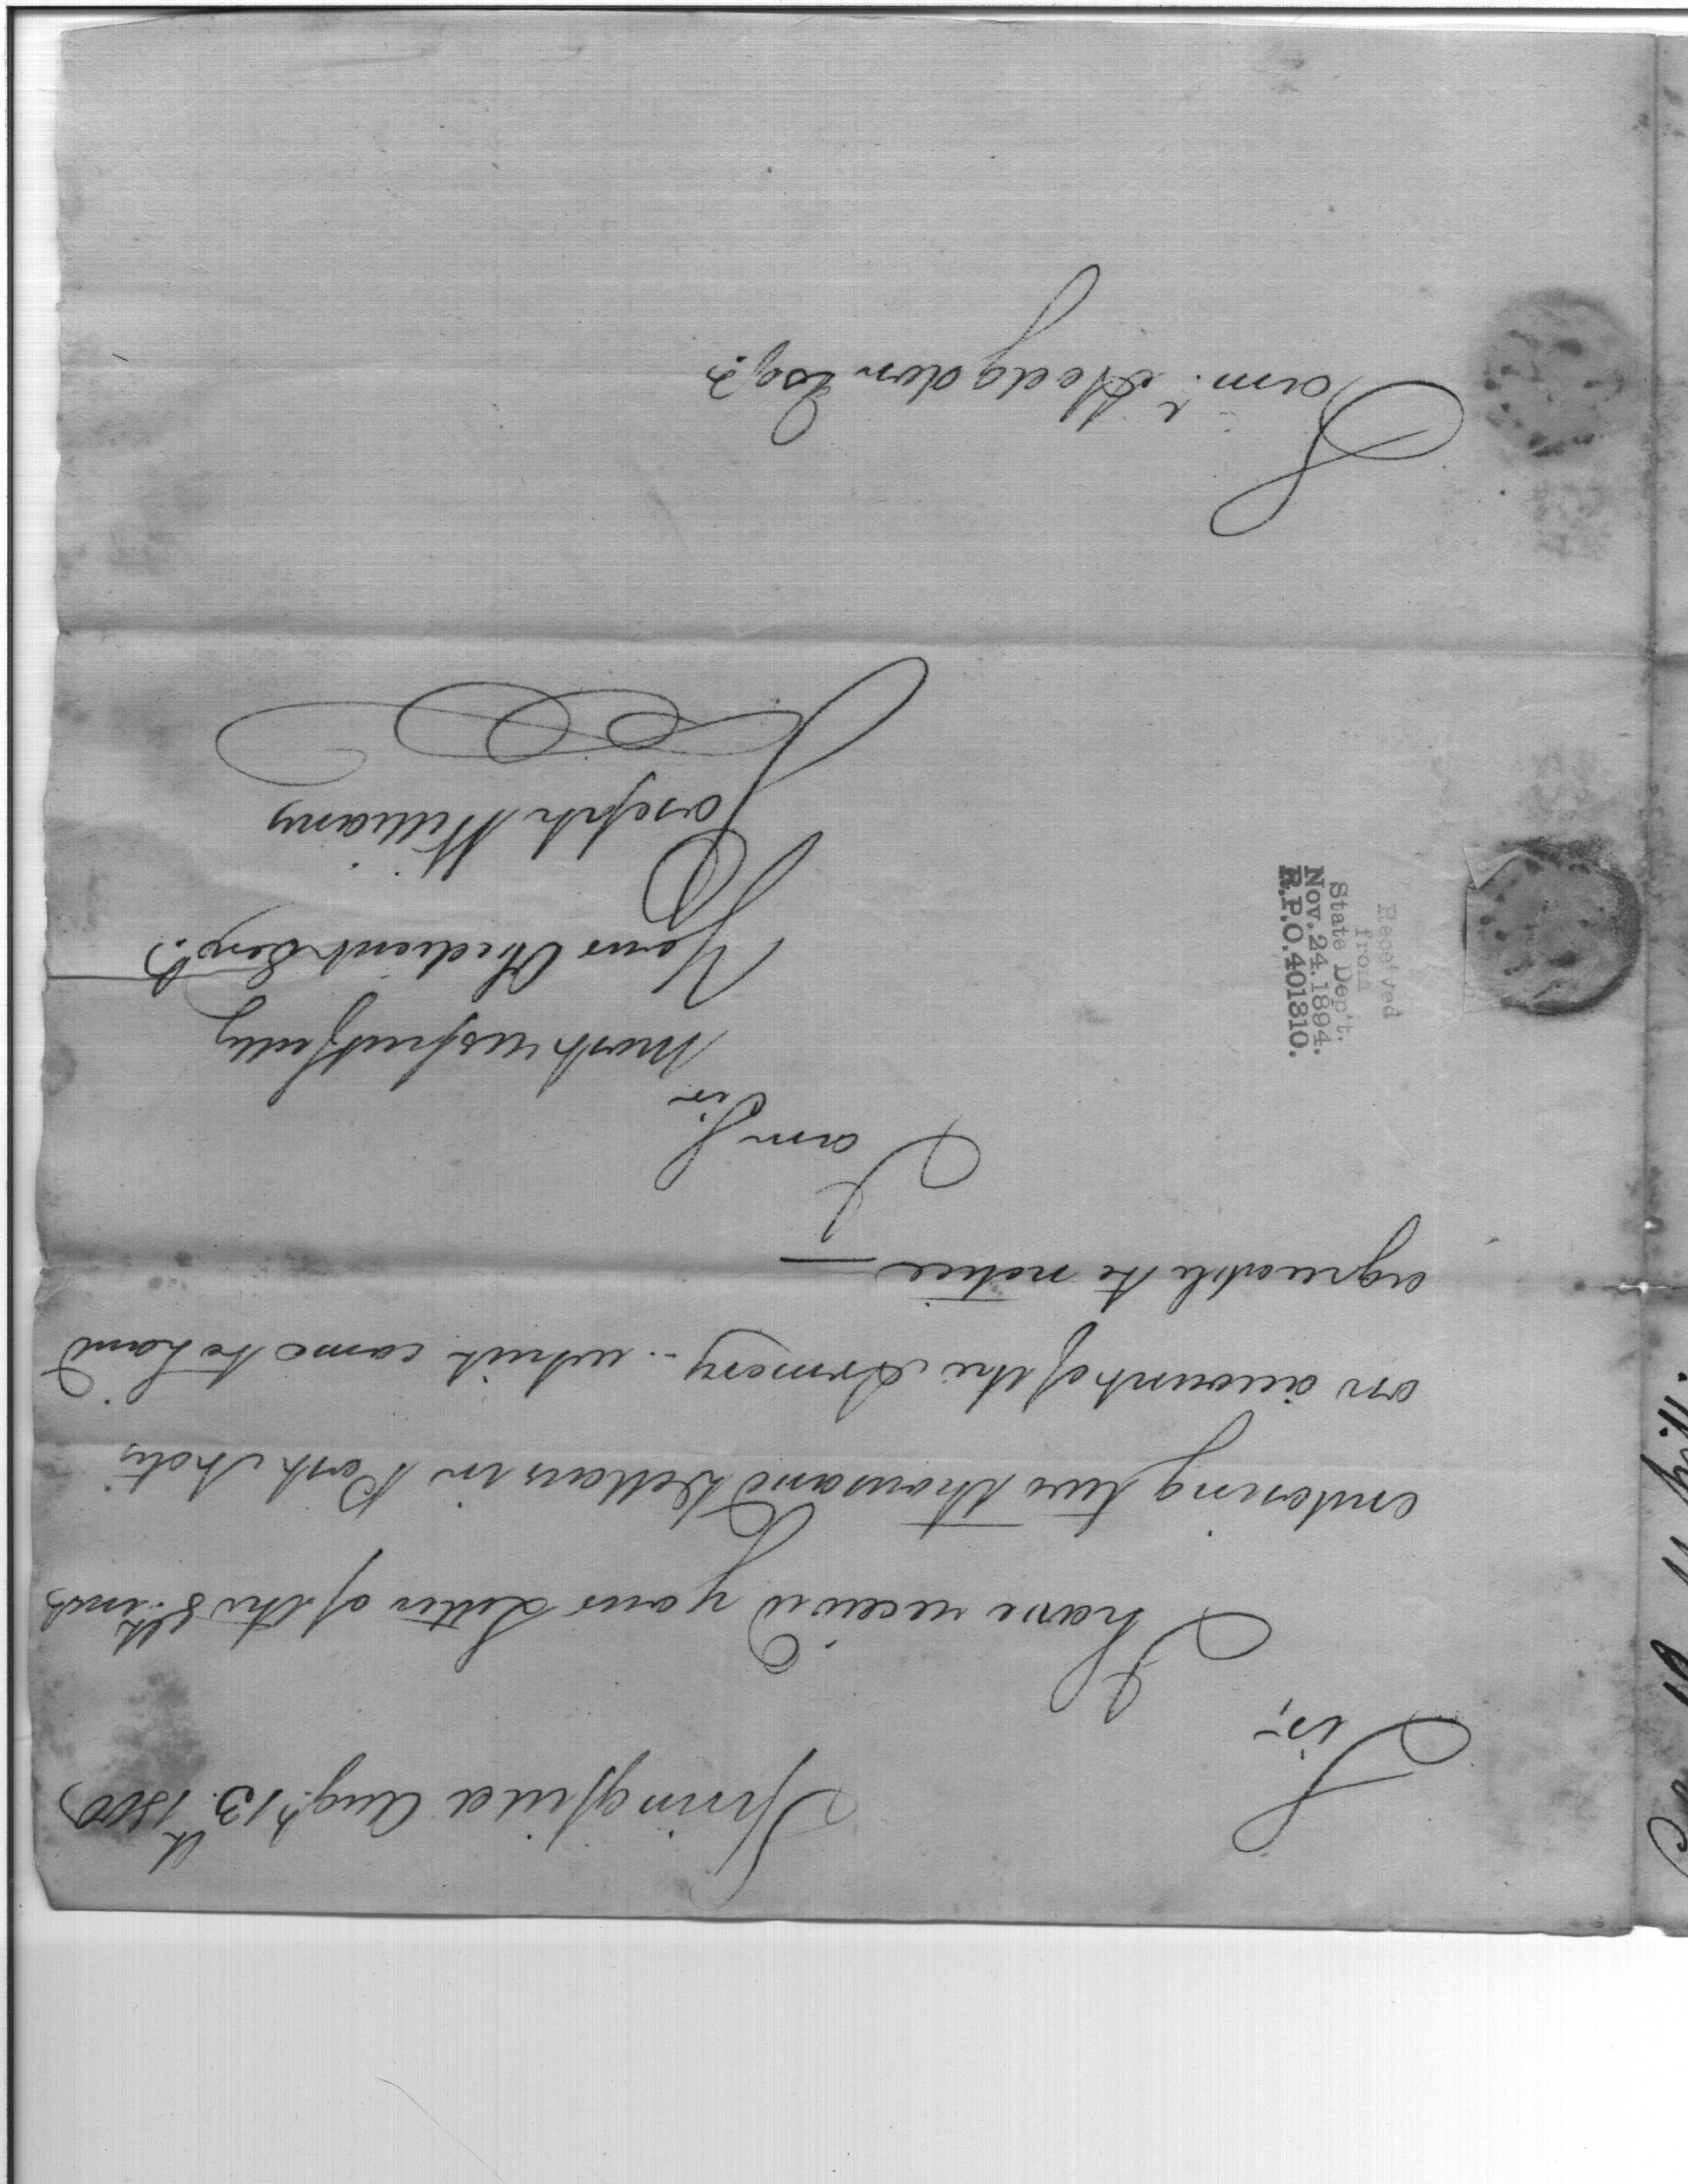 Springfield Aug.t 13.th 1800
Sir,
I have received your Letter of the 8.th inst
enclosing two thousand Dollars in Post Notes
on account of the Armory - which came to hand
agreeable to notice —
I am Sir
most respectfully
Your Obedient Serv.t
Joseph Williams
Sam.l Hodgdon Esq.r
Received
from
State Dep't.
Nov. 24. 1894.
R.P.O. 401310.